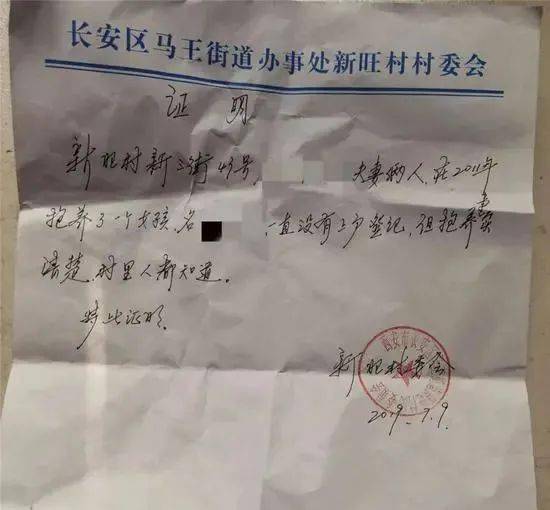 长安区马王街道办事处新旺村村委会
证明
新旺村新三街43号, 夫妻俩人,在2011年
抱养了一个女孩,名 一直没有上户登记,但抱养事实
清楚,村里人都知道。
特此证明。
新旺村委会
2019.7.9.